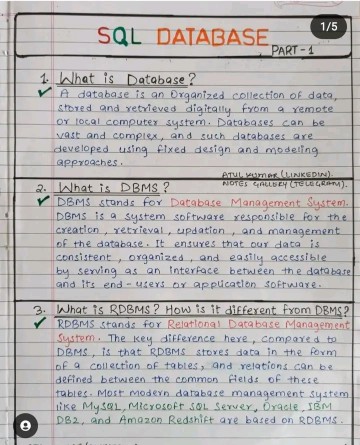 1/5
SQL DATABASE
PART-1
1. What is Database?
A database is an organized collection of data,
stored and retrieved digitally from a remote
or local computer system. Databases can be
vast and complex, and such databases are
developed using fixed design and modeling
approaches.
ATUL KUMAR (LINKEDIN).
NOTES GALLERY (TELEGRAM).
2. What is DBMS?
DBMS stands for Database Management System.
DBMS is a system software responsible for the
creation, retrieval, updation, and management
of the database. It ensures that our data is
consistent, organized, and easily accessible
by serving as an interface between the database
and its end-users or application software.
3. What is RDBMS? How is it different from DBMS?
RDBMS stands for Relational Database Management
System. The key difference here, compared to
DBMS, is that RDBMS stores data in the form
of a collection of tables, and relations can be
defined between the common fields of these
tables. Most modern database management system
like MySQL, Microsoft SQL Server, Oracle, IBM
DB2, and Amazon Redshift are based on RDBMS.